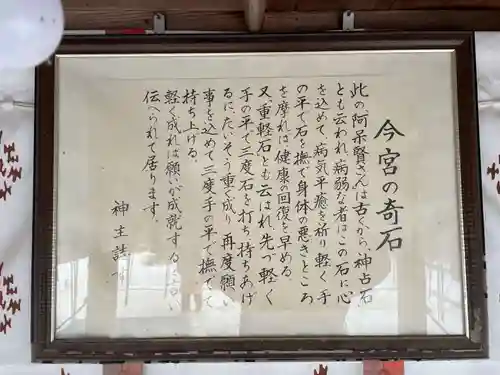 今宮の奇石
此の阿呆賢さんは古くから、神占石
とも云われ、病弱な者はこの石に心
を込めて、病気平癒を祈り軽く手
の平で石を撫で身体の悪きところ
を摩れば健康の回復を早める。
又、重軽石とも云はれ、先づ軽く
手の平で三度石を打ち持ちあげ
るにたいそう重く成り、再度願い
事を込めて三度手の平で撫でて
持ち上げる。
軽く成れば願いが成就すると言い
伝へられて居ります。
神主